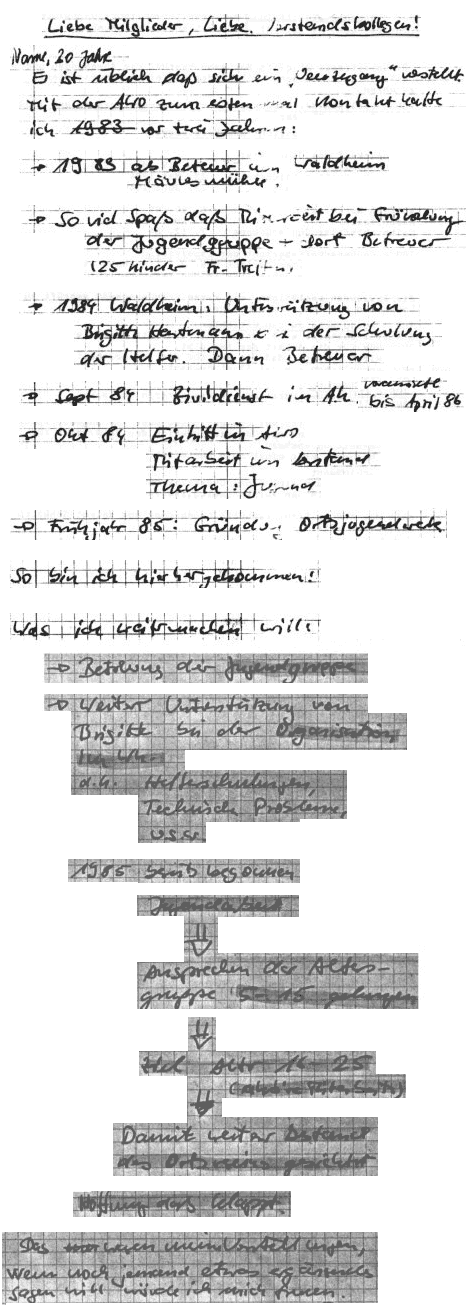 Liebe Mitglieder, Liebe Vorstandskollegen!
Name, 20 Jahre
Es ist üblich daß sich ein vorstellt
Mit der AWO zum ersten mal Kontakt hatte
ich 1983 vor drei Jahren:
→ 1983 als Betreuer im Waldheim
Mäulesmühle.
→ So viel Spaß daß bei Gründung
der Jugendgruppe + dort Betreuer
25 Kinder Fr. Treffen.
→ 1984 Waldheim: Unterstützung von
Brigitte in der Schulung
der Helfer. Dann Betreuer
→ Sept 84 Zivildienst im Ah. voraussichtl.
bis April 86
→ Okt 84 Eintritt in AWO
Mitarbeit im Vorstand
Thema: Jugend
→ Frühjahr 85: Gründung Ortsjugendwerk
So bin ich hierhergekommen!
Was ich weitermachen will:
→ Betreuung der Jugendgruppe
→ Weitere Unterstützung von
Brigitte bei der Organisation
im
d.h. Helferschulungen,
Technische Probleme,
usw.
1985 begonnen
Jugendarbeit
⇓
Ansprechen der Alters-
gruppe 5-15 gelungen
⇓
Ziel Alter 16-25
⇓
Damit weiter Bestand
des Ortsvereins gesichert
Hoffnung daß klappt.
Das waren meine Vorstellungen,
wenn noch jemand etwas ergänzendes
sagen will würde ich mich freuen.